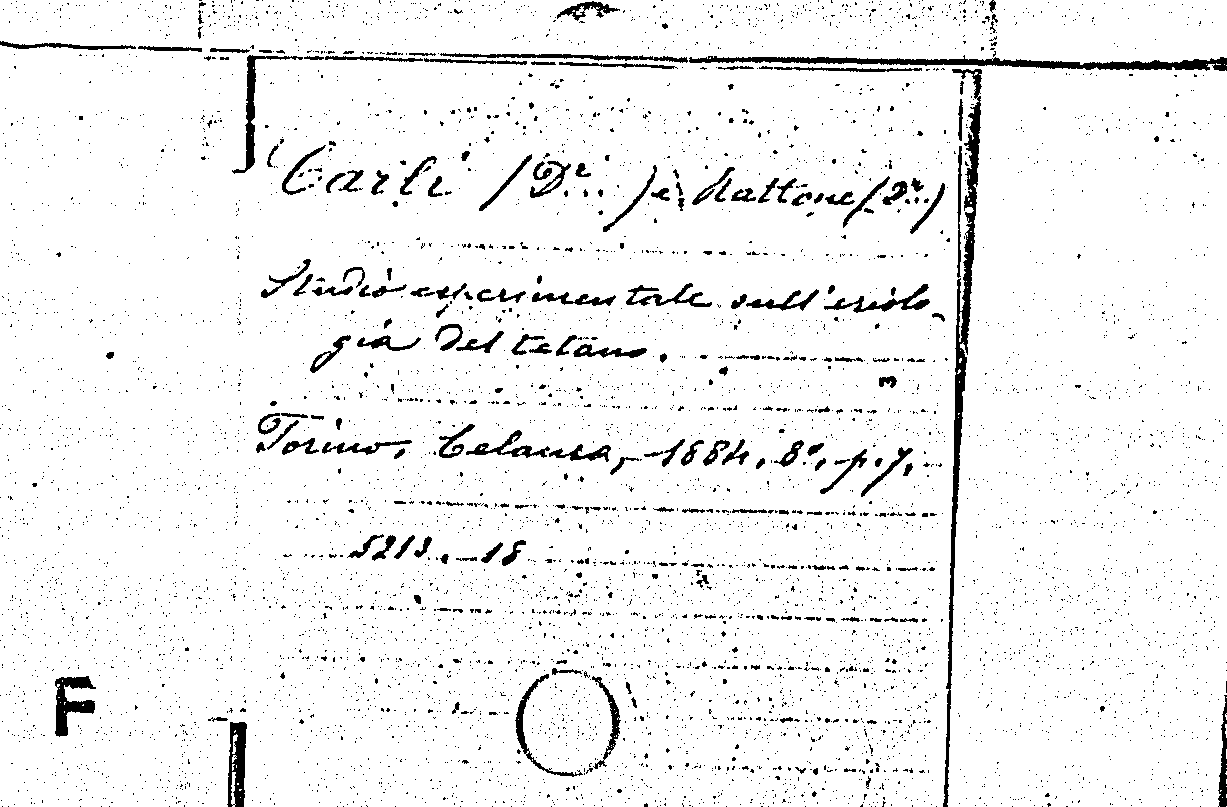 Carli (Dr...) e Rattone (Dr...)
Studio esperimentale sull'eziolo-
gia del tetano.
3
Torino, Celanza, 1884. 8°. p. 7.
5213. 18
F